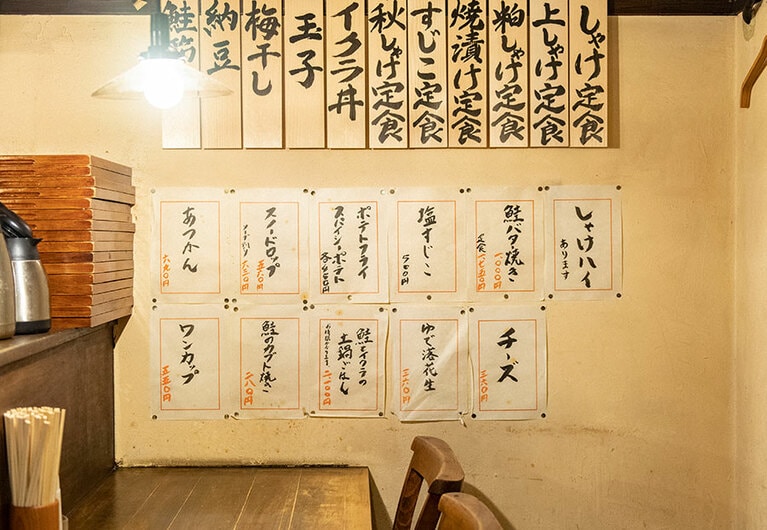 しゃけ定食
上しゃけ定食
粕しゃけ定食
焼漬け定食
すじこ定食
秋しゃけ定食
イクラ丼
玉子
梅干し
納豆
しゃけハイ
あります
鮭バタ焼き
一〇〇〇円
定食 一七五〇円
塩すじこ
五〇〇円
ポテトフライ
スパイシーポテト
スノードロップ
あつかん
六九〇円
チーズ
三六〇円
ゆで落花生
三六〇円
鮭とイクラの
土鍋ごはん
二一〇〇円
鮭のカブト焼き
二八〇円
ワンカップ
五五〇円